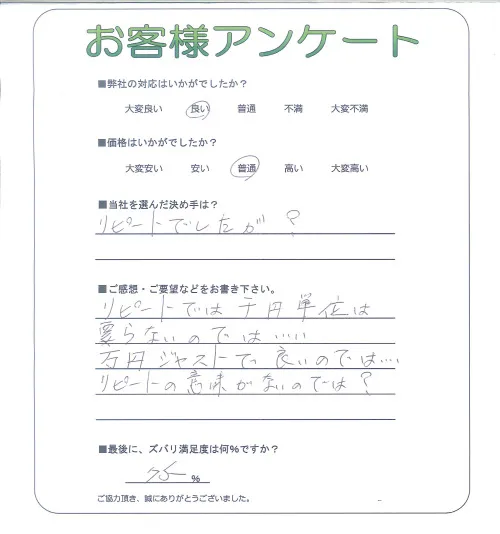 お客様アンケート
■弊社の対応はいかがでしたか？
大変良い 良い 普通 不満 大変不満
■価格はいかがでしたか？
大変安い 安い 普通 高い 大変高い
■当社を選んだ決め手は？
リピートでしたが？
■ご感想・ご要望などをお書き下さい。
リピートでは千円単位は
らないのでは……
万円ジャストで良いのでは…
リピートの意味がないのでは？
■最後に、ズバリ満足度は何%ですか？
75 %
ご協力頂き、誠にありがとうございました。